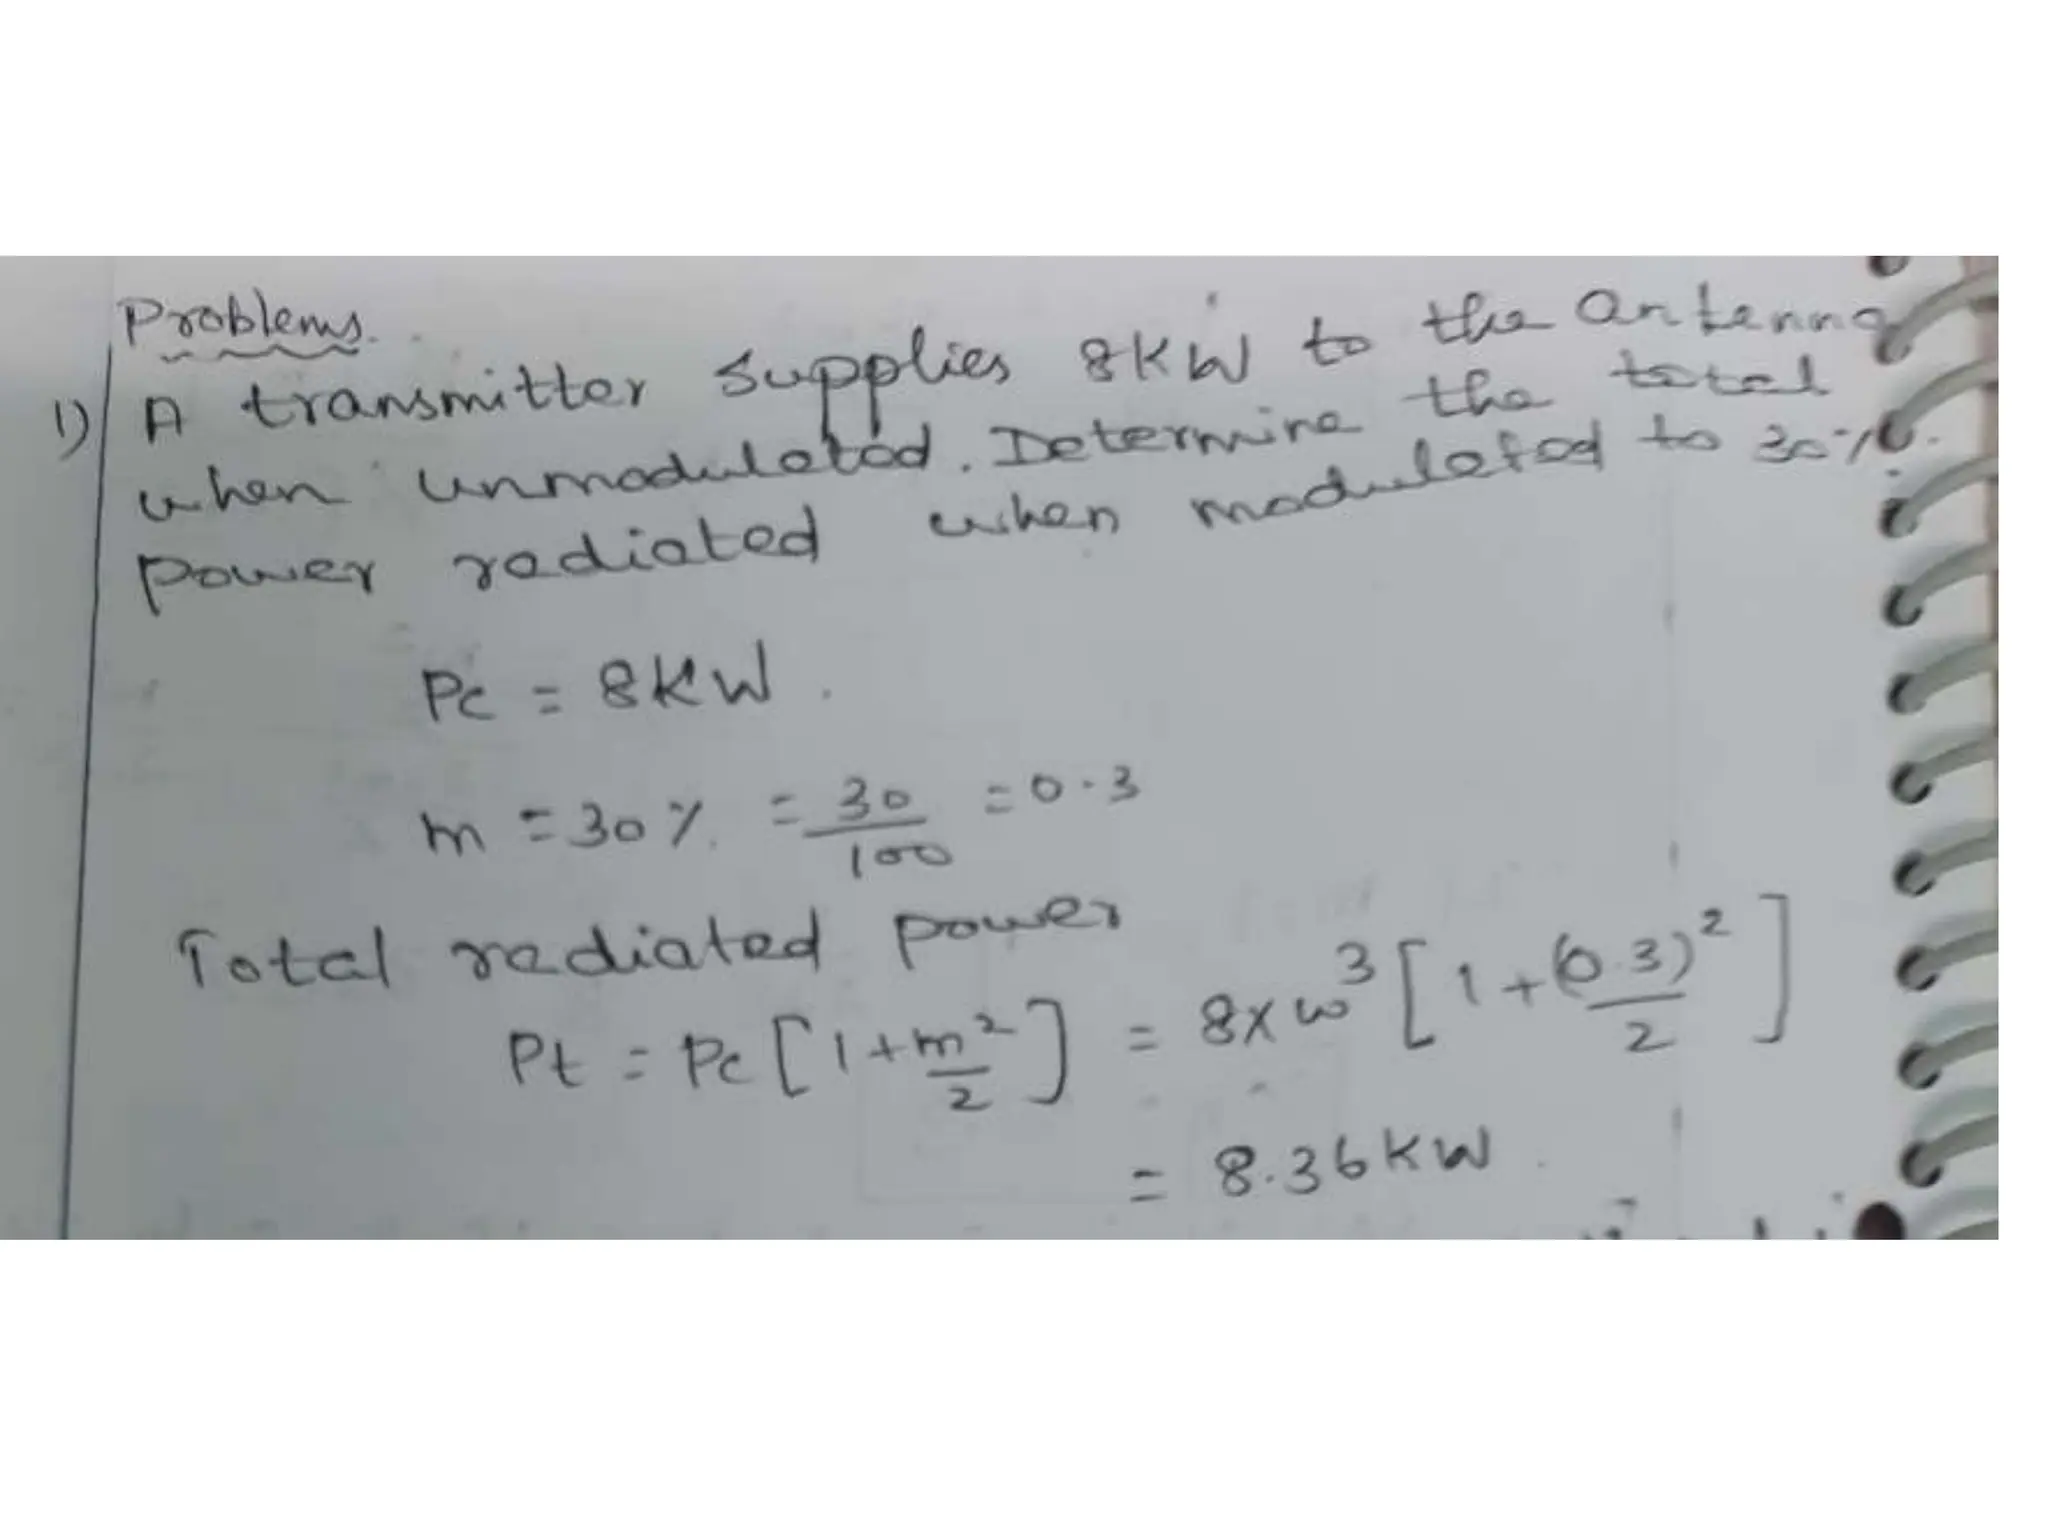 Problems.
1) A transmitter supplies 8KW to the antenna
when unmodulated. Determine the total
power radiated when modulated to 30%.
Pc = 8KW.
m = 30% = 30/100 = 0.3
Total radiated power
Pt = Pc [1+m²/2] = 8×10³ [1+(0.3)²/2]
= 8.36KW